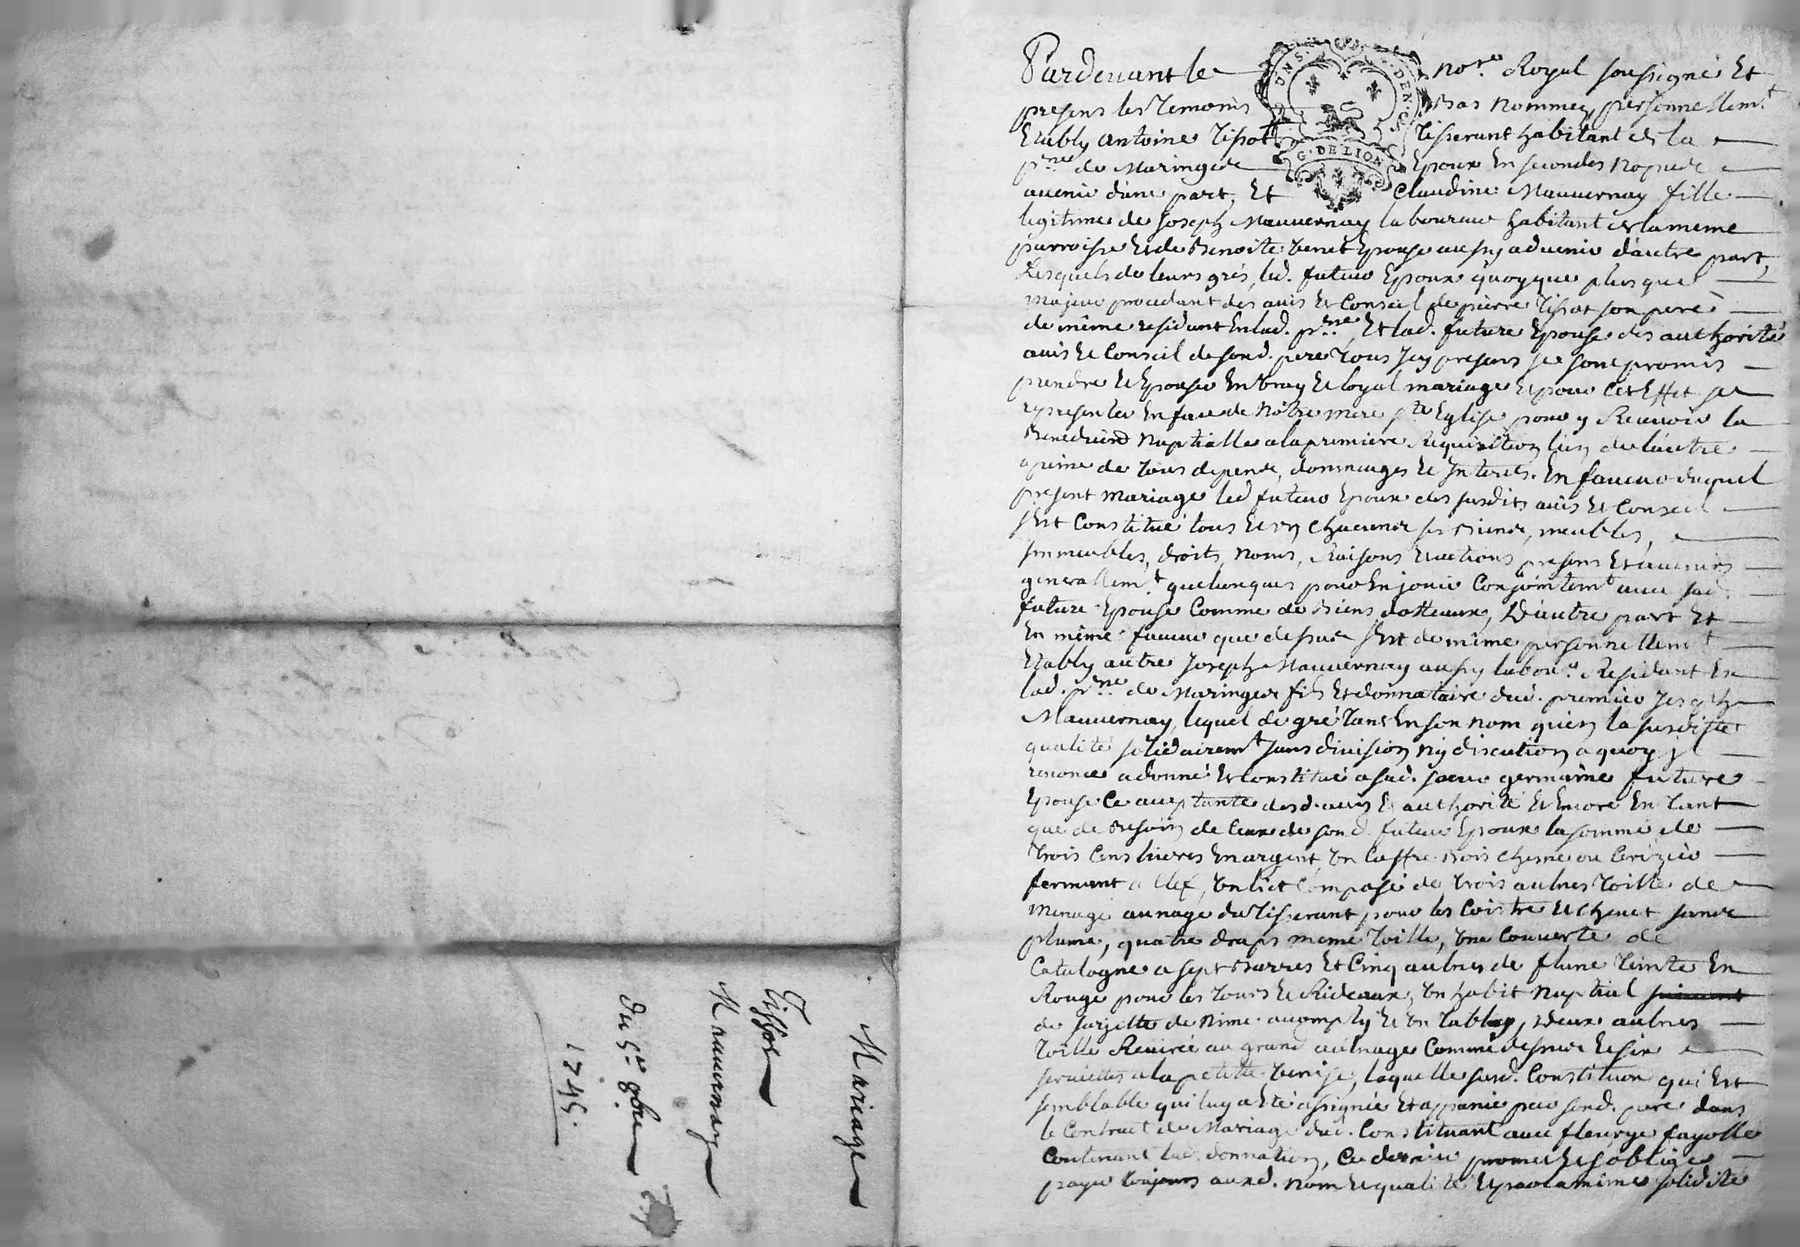 Mariage
Tissot
Mauvernay
Du 5e 8bre
1745.
Pardevant le nore. Royal soussigné Et
presens les temoins Bas Nommez, personnellemt.
Etably Antoine Tissot Tisserant habitant Es la
psse de Maringes Epoux En secondes Nopces
avenir d'une part, Et Claudine Mauvernay fille
legitime de Joseph Mauvernay laboureur habitant Es la meme
parroisse Et de Benoite Venet Epouse aussy advenir d'autre part,
Lesquels de leurs grés, led. futur Epoux quoyque plus que
majeur procedant des avis Et Conseil de pierre Tissot son pere
de même residant En lad. psse, Et lad. future Epouse des authorité
avis Et Conseil de sond. pere tous Icy presens se sont promis
prendre Et Epouser En vray Et loyal mariage Et pour Cet Effet se
representer En face de Nôtre mere ste Eglise pour y Recevoir la
Benediction Nuptialle a la premiere Requisition l'un de l'autre
a peine de tous depens, dommages Et Interets. En faveur duquel
present mariage led futur Epoux des susdits avis Et Conseil
s'est Constitué tous Et un chacuns ses Biens, meubles,
Immeubles, droits, noms, Raisons Et actions presens Et avenirs
generallemt. quelconques pour En jouir Conjointemt avec sad.
future Epouse Comme de Biens dotteaux, D'autre part Et
En même faveur que dessus s'est de même personnellemt
Etably autre Joseph Mauvernay aussy labour. Residant En
lad. psse de Maringes fils Et donnataire dud. premier Joseph
Mauvernay, lequel de gré tant En son nom qu'en la susditte
qualité solidairemt sans division ny discution a quoy il
renonce a donné Et Constitué a sad. soeur germaine future
Epouse Ce acceptante desd. avis Et authorité Et Encore En tant
que de Besoin de Ceux de sond. futur Epoux la somme de
trois Cens livres En argent, un Coffre Bois chesne ou Cerizier
fermant a Clef, un lict Composé de trois aulnes toille de
menage aunage de Tisserant pour les Coistre Et Chevet sans
plume, quatre draps meme toille, une Couverte de
Catalogne a sept Barres Et Cinq aulnes de flane teinte En
Rouge pour les tours Et Rideaux, un habit Nuptial
de sargette de Nime accomply Et un tablier, Deux aulnes
toille au grand aulnage Comme dessus Et six
serviettes a la petitte Venise, laquelle susd. Constitution qui Est
semblable qui luy a Eté assignée Et appanée par sond. pere dans
le Contract de Mariage dud. Constituant avec fleurye fayolle
Contenant lad. donnation, Ce dernier promet Et s'oblige
payer toujours auxd. nom Et qualité Et sous la même solidité